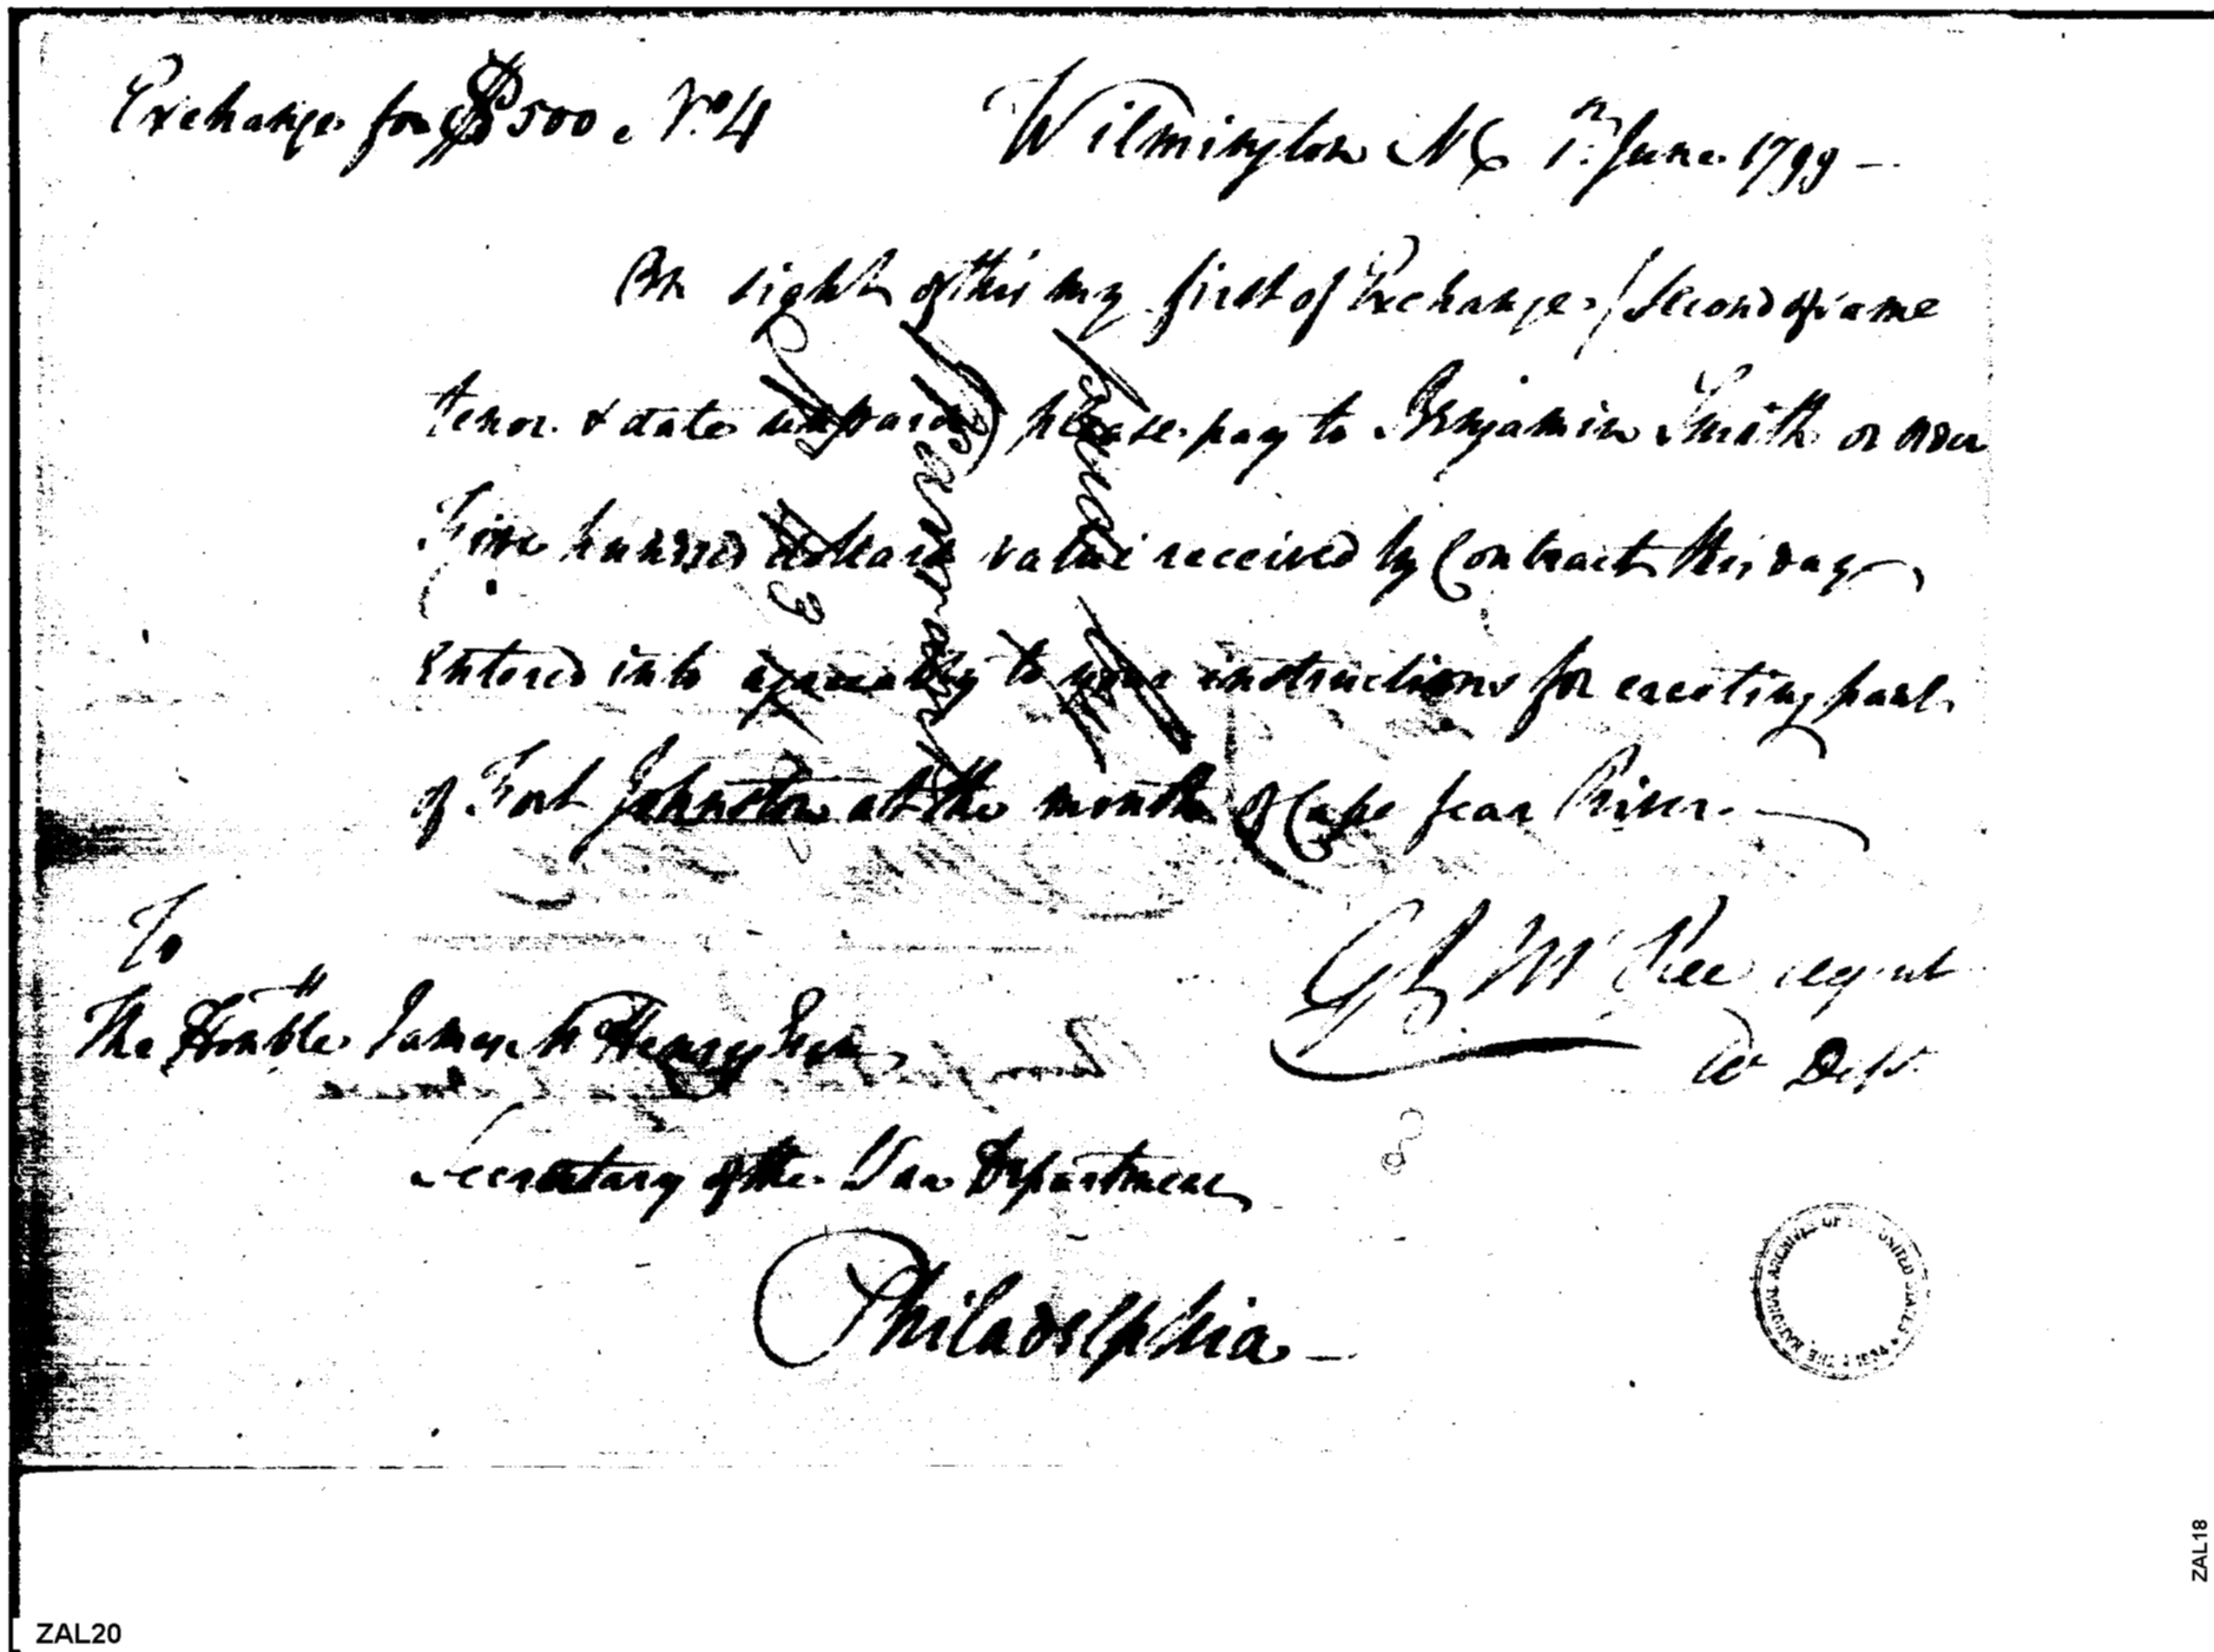 Exchange for $500 No 4 Wilmington NC 1st June 1799 —
On sight of this my first of Exchange (Second of same
tenor & date unpaid) please pay to Benjamin Smith or order
Five hundred dollars value received by Contract this day
entered into agreeably to your instructions for erecting part
of Fort Johnston at the mouth of Cape fear River. —
To
G J McRee agent
W Dept.
The Honble James McHenry Esqr
Secretary of the War Department
Philadelphia —
THE NATIONAL ARCHIVES OF THE UNITED STATES
ZAL18
ZAL20